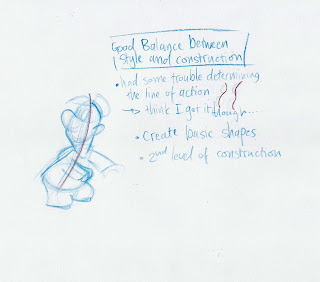 Good Balance between
style and construction
• had some trouble determining
the line of action
→ think I got it though...
• Create basic shapes
• 2nd level of construction